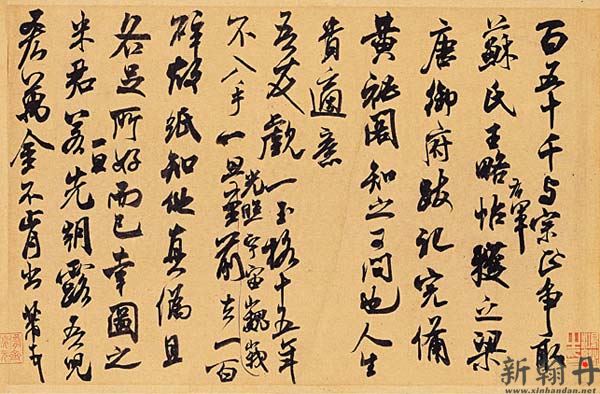 百五十千与宗正爭取
蘇氏王略帖右軍獲之梁
唐御府跋記完備
黃秘閣知之可問也人生
貴適意
吾友覷一玉格十五年
不入手一旦光照宇宙巍峩至前去一百
碎故紙知他真偽且
各足所好而已幸圖之
米君若一旦先朝露吾兒
吝萬金不肯出芾頓首
新翰丹
www.xinhandan.net